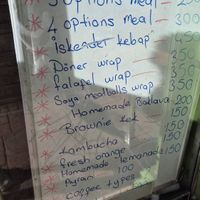 3 options meal — 250
4 options meal — 300
"İskender kebap" 450
Döner wrap — 350
falafel wrap — 350
Soya meatballs wrap 350
Homemade Baklava 200
Brownie kek 150
Kambucha 150
fresh orange 150
Homemade lemonade 150
Ayran 100
coffee types